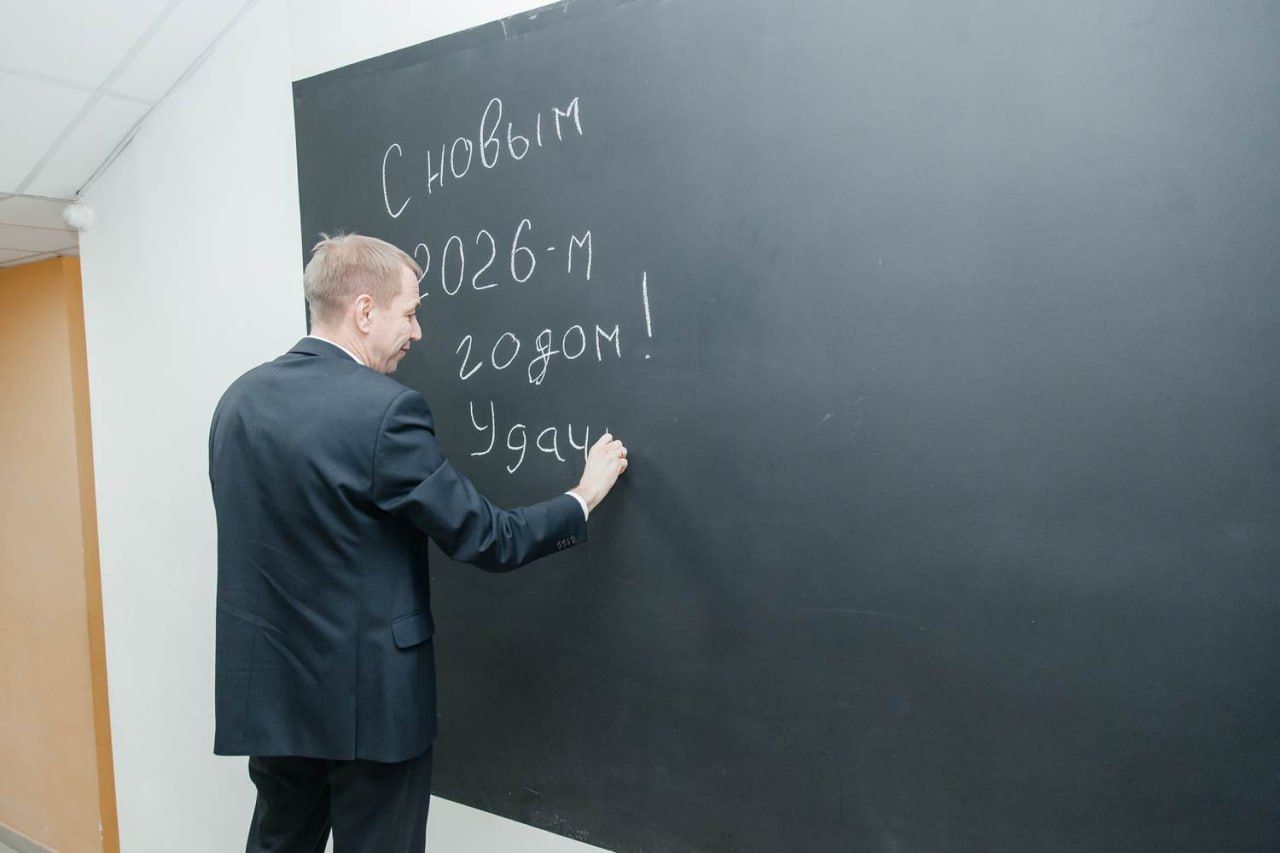 С новым
2026-м
годом!
Удач